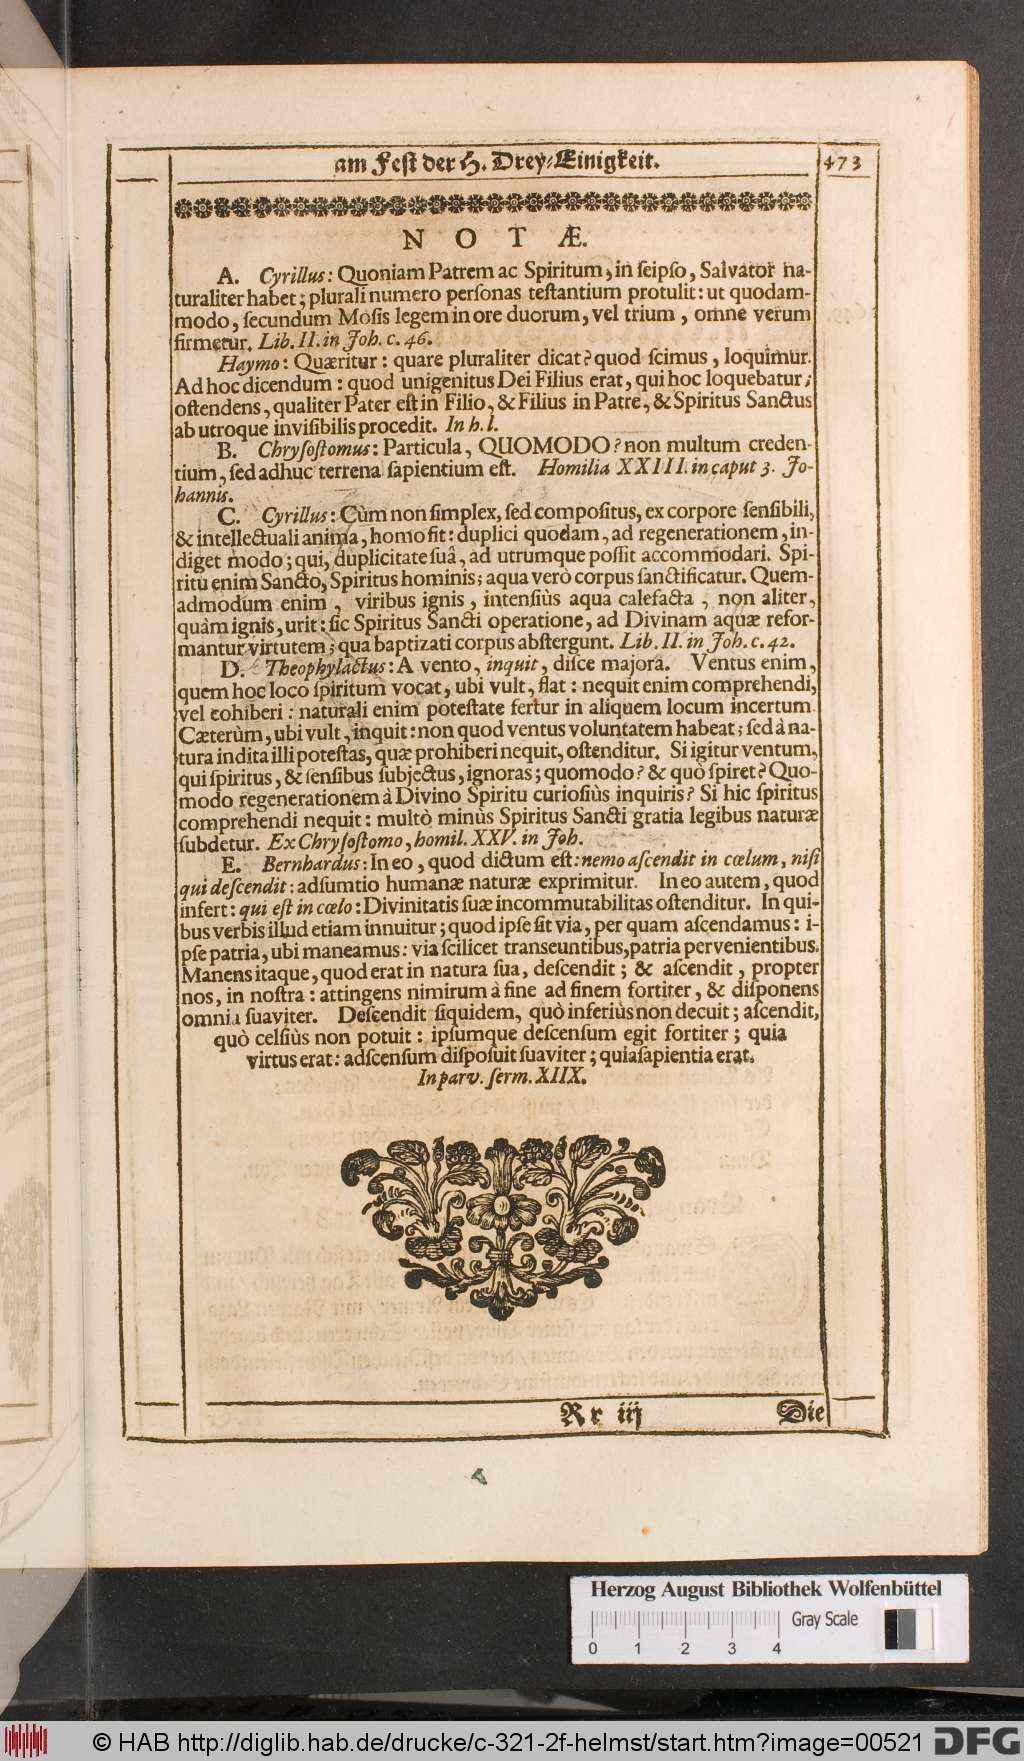 am Feſt der H. Drey⸗Einigkeit.
473
NOTÆ.
A. Cyrillus: Quoniam Patrem ac Spiritum, in ſeipſo, Salvator na-
turaliter habet; plurali numero perſonas teſtantium protulit: ut quodam-
modo, ſecundum Moſis legem in ore duorum, vel trium, omne verum
firmetur. Lib. II. in Joh. c. 46.
Haymo: Quæritur: quare pluraliter dicat? quod ſcimus, loquimur.
Ad hoc dicendum: quod unigenitus Dei Filius erat, qui hoc loquebatur;
oſtendens, qualiter Pater eſt in Filio, & Filius in Patre, & Spiritus Sanctus
ab utroque inviſibilis procedit. In h. l.
B. Chryſoſtomus: Particula, QUOMODO? non multum creden-
tium, ſed adhuc terrena ſapientium eſt. Homilia XXIII. in caput 3. Jo-
hannis.
C. Cyrillus: Cùm non ſimplex, ſed compoſitus, ex corpore ſenſibili,
& intellectuali anima, homo ſit: duplici quodam, ad regenerationem, in-
diget modo; qui, duplicitate ſuâ, ad utrumque poſſit accommodari. Spi-
ritu enim Sancto, Spiritus hominis; aqua verò corpus ſanctificatur. Quem-
admodum enim, viribus ignis, intenſiùs aqua calefacta, non aliter,
quàm ignis, urit: ſic Spiritus Sancti operatione, ad Divinam aquæ refor-
mantur virtutem; qua baptizati corpus abſtergunt. Lib. II. in Joh. c. 42.
D. Theophylactus: A vento, inquit, diſce majora. Ventus enim,
quem hoc loco ſpiritum vocat, ubi vult, flat: nequit enim comprehendi,
vel cohiberi: naturali enim poteſtate fertur in aliquem locum incertum.
Cæterùm, ubi vult, inquit: non quod ventus voluntatem habeat; ſed à na-
tura indita illi poteſtas, quæ prohiberi nequit, oſtenditur. Si igitur ventum,
qui ſpiritus, & ſenſibus ſubjectus, ignoras; quomodo? & quò ſpiret? Quo-
modo regenerationem à Divino Spiritu curioſiùs inquiris? Si hic ſpiritus
comprehendi nequit: multò minùs Spiritus Sancti gratia legibus naturæ
ſubdetur. Ex Chryſoſtomo, homil. XXV. in Joh.
E. Bernhardus: In eo, quod dictum eſt: nemo aſcendit in cœlum, niſi
qui deſcendit: adſumtio humanæ naturæ exprimitur. In eo autem, quod
infert: qui eſt in cœlo: Divinitatis ſuæ incommutabilitas oſtenditur. In qui-
bus verbis illud etiam innuitur; quod ipſe ſit via, per quam aſcendamus: i-
pſe patria, ubi maneamus: via ſcilicet transeuntibus, patria pervenientibus.
Manens itaque, quod erat in natura ſua, deſcendit; & aſcendit, propter
nos, in noſtra: attingens nimirum à fine ad finem fortiter, & diſponens
omnia ſuaviter. Deſcendit ſiquidem, quò inferiùs non decuit; aſcendit,
quò celſiùs non potuit: ipſumque deſcenſum egit fortiter; quia
virtus erat: adſcenſum diſpoſuit ſuaviter; quia ſapientia erat.
In parv. ſerm. XIIX.
Rr iij
Die
Herzog August Bibliothek Wolfenbüttel
Gray Scale
0 1 2 3 4
© HAB http://diglib.hab.de/drucke/c-321-2f-helmst/start.htm?image=00521
DFG